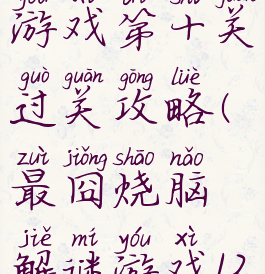 游戏第十关
guò guān gōng lüè
过关攻略(
zuì jiǒng shāo nǎo
最囧烧脑
jiě mí yóu xì
解谜游戏12